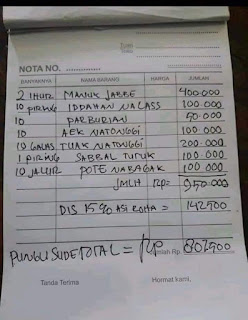 Tuan
Toko
NOTA NO.
BANYAKNYA NAMA BARANG HARGA JUMLAH
2 IHUR MANUK JABBE 400.000
10 PIRING IDDAHAN NALASS 100.000
10 PARBURIAN 50.000
10 AEK NATONGGI 100.000
10 GALAS TUAK NATONGGI 200.000
1 PIRING SABBAL TUTUK 100.000
10 JALUR POTE NABAGAK 100.000
JMLH Rp= 950.000
DIS 15% ASI ROHA = 142500
PUNGLI SUDE TOTAL = Rp Jumlah Rp. 807.500
Tanda Terima Hormat kami,